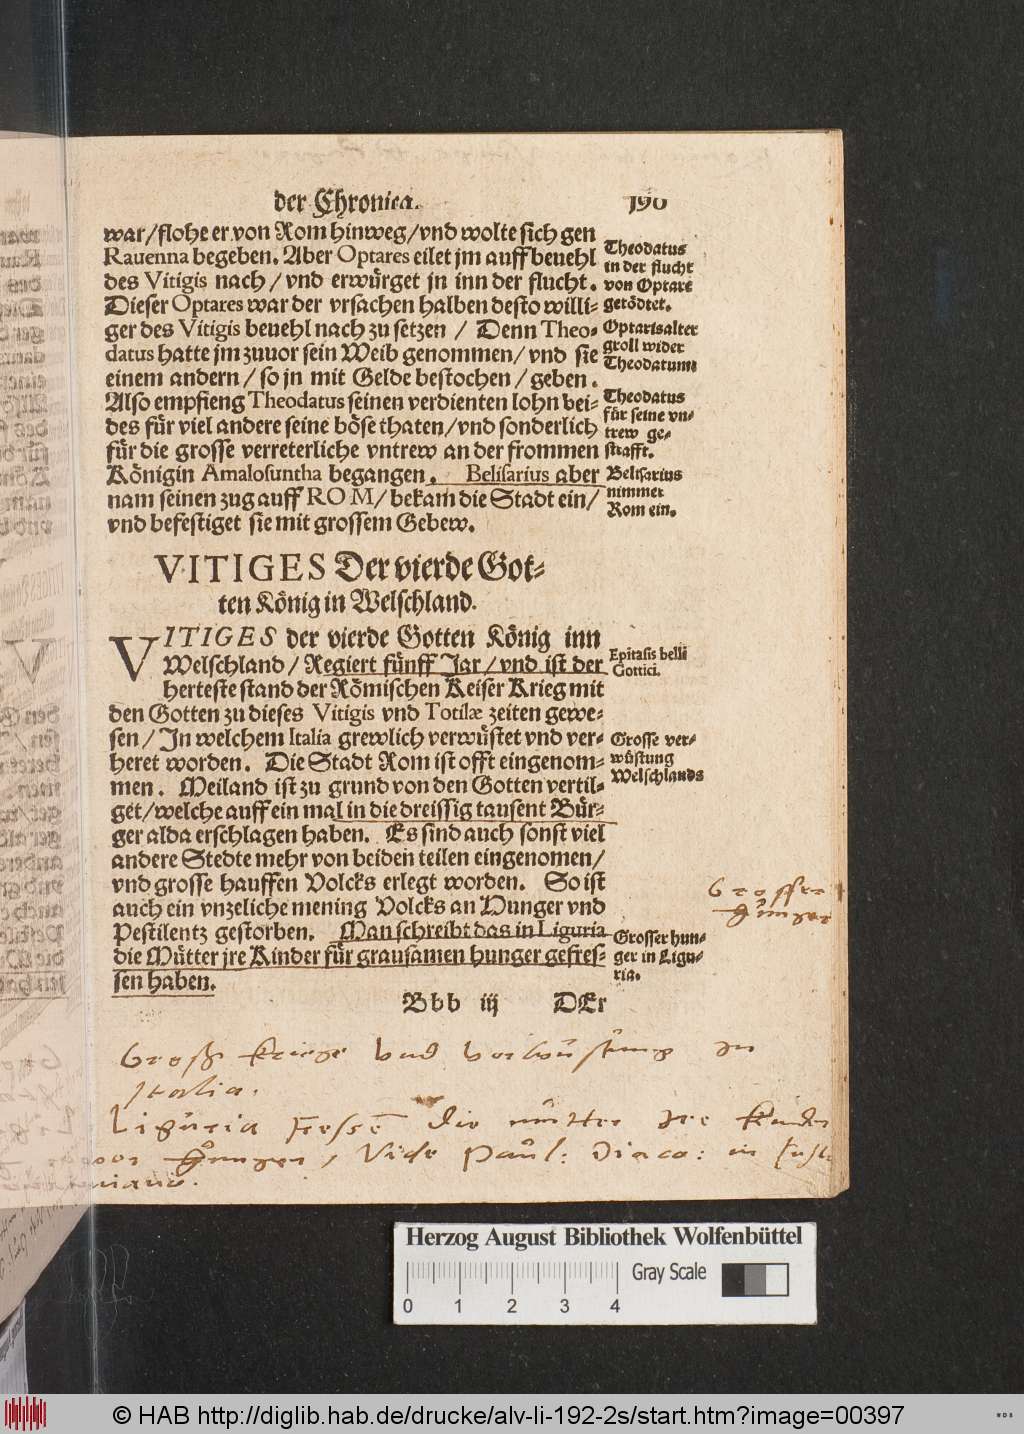 der Chronica. 190
war/flohe er von Rom hinweg/vnd wolte sich gen
Rauenna begeben. Aber Optares eilet jm auff beuehl
des Vitigis nach/vnd erwürget jn inn der flucht.
Dieser Optares war der vrsachen halben desto willi-
ger des Vitigis beuehl nach zu setzen / Denn Theo-
datus hatte jm zuuor sein Weib genommen/vnd sie
einem andern/so jn mit Gelde bestochen/geben.
Also empfieng Theodatus seinen verdienten lohn bei-
des für viel andere seine böse thaten/vnd sonderlich
für die grosse verreterliche vntrew an der frommen
Königin Amalosuntha begangen. Belisarius aber
nam seinen zug auff ROM/bekam die Stadt ein/
vnd befestiget sie mit grossem Gebew.
Theodatus
in der flucht
von Optare
getödtet.
Optaris alter
groll wider
Theodatum
Theodatus
für seine vn-
trew ge-
strafft.
Belisarius
nimmet
Rom ein.
VITIGES Der vierde Got-
ten König in Welschland.
VITIGES der vierde Gotten König inn
Welschland/Regiert fünff Jar/vnd ist der
herteste stand der Römischen Keiser Krieg mit
den Gotten zu dieses Vitigis vnd Totilæ zeiten gewe-
sen/Jn welchem Italia grewlich verwüstet vnd ver-
heret worden. Die Stadt Rom ist offt eingenom-
men. Meiland ist zu grund von den Gotten vertil-
get/welche auff ein mal in die dreissig tausent Bür-
ger alda erschlagen haben. Es sind auch sonst viel
andere Stedte mehr von beiden teilen eingenomen/
vnd grosse hauffen Volcks erlegt worden. So ist
auch ein vnzeliche mening Volcks an Hunger vnd
Pestilentz gestorben. Man schreibt das in Liguria
die Mütter jre Kinder für grausamen hunger gefres-
sen haben.
Epitasis belli
Gottici.
Grosse ver-
wüstung
Welschlands
Grosser
Hunger
Grosser hun-
ger in Ligu-
ria.
Bbb iij DEr
Groß kriege vnd verwüstung in
Italia.
Liguria fressē die mütter ire kinder
hunger, Vide Paul: Diaco: in
Herzog August Bibliothek Wolfenbüttel
0 1 2 3 4 Gray Scale
© HAB http://diglib.hab.de/drucke/alv-li-192-2s/start.htm?image=00397